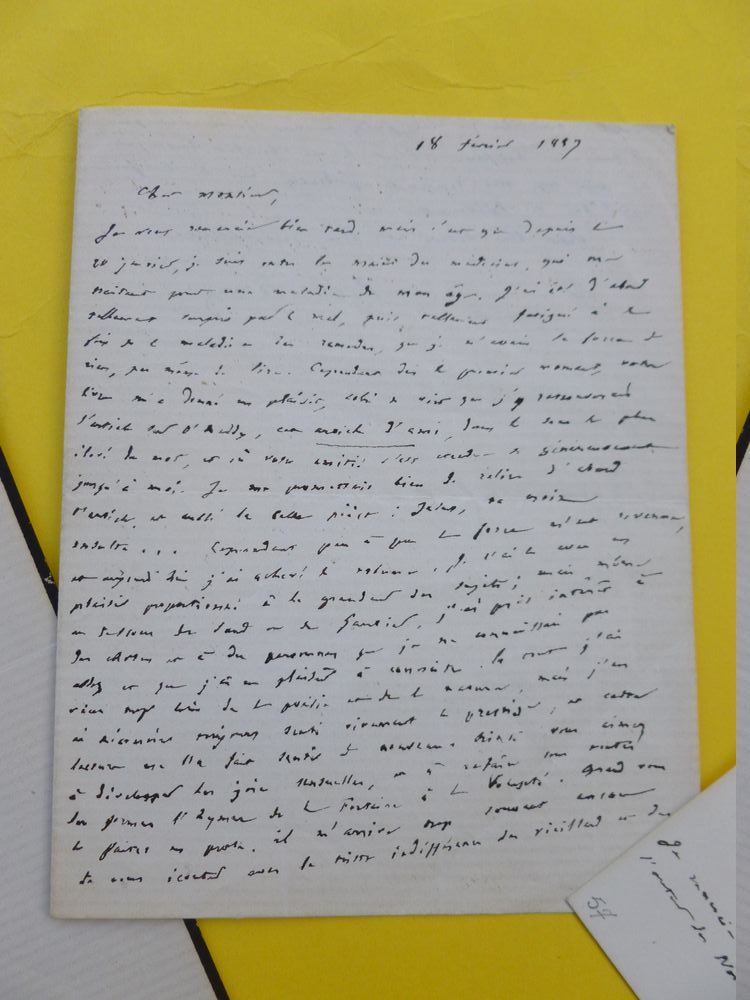 18 février 1887
Cher monsieur,
Je vous remercie bien tard. mais c'est que depuis le
20 janvier, je suis entre les mains des médecins, qui me
traitent pour une maladie de mon âge. J'ai été d'abord
tellement surpris par le mal, puis tellement fatigué à la
fois de la maladie et des remèdes, que je n'avais la force de
rien, pas même de lire. Cependant dès le premier moment, votre
livre m'a donné un plaisir, celui de voir que j'y
l'article sur O'Meddy, un article d'ami, dans le sens le plus
élevé du mot, et où votre amitié s'est étendue si généreusement
jusqu'à moi. Je me promettais bien de relire d'abord
l'article, et aussi la belle pièce : Jalouse,
ensuite... Cependant peu à peu la force m'est revenue,
et aujourd'hui j'ai achevé le volume. Je l'ai lu avec un
plaisir proportionné à la grandeur des sujets ; mais même
au dessous de Sand ou de Gautier, j'ai pris intérêt à
des choses et à des personnes que je ne connaissais pas
assez et que j'ai eu plaisir à connaître.
vécu trop loin de la poésie et de la nature, mais j'en
ai toujours senti vivement le prestige ; et cette
lecture me l'a fait sentir de nouveau. Ainsi vous aimez
à développer les joies sensuelles, et à refaire sous toutes
les formes l'hymne de La Fontaine à la Volupté. Quand vous
le faites en prose, il m'arrive trop souvent
de vous écouter avec la triste indifférence du vieillard et du
Je
l'
54